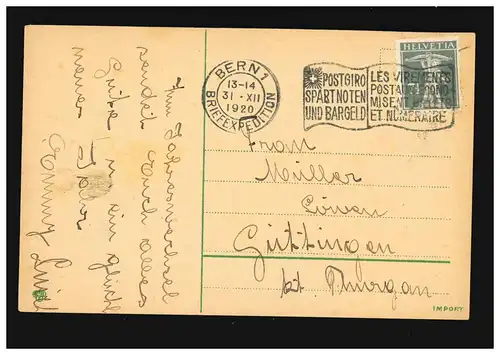 BERN 1
13-14
31·XII
1920
BRIEFEXPEDITION
POSTGIRO
SPART NOTEN
UND BARGELD
LES VIREMENTS
POSTAUX
ET NUMÉRAIRE
HELVETIA
Zum Jahreswechsel
sendet Euch alles
Gute
neues Jahr
Emmy
Frau
Müller
Löwen
Güttingen
kt. Thurgau
IMPORT